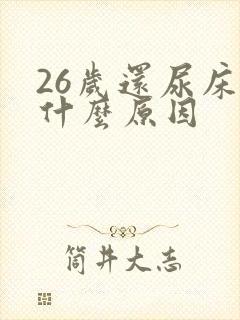 26歲還尿床
什麼原因
筒井大志